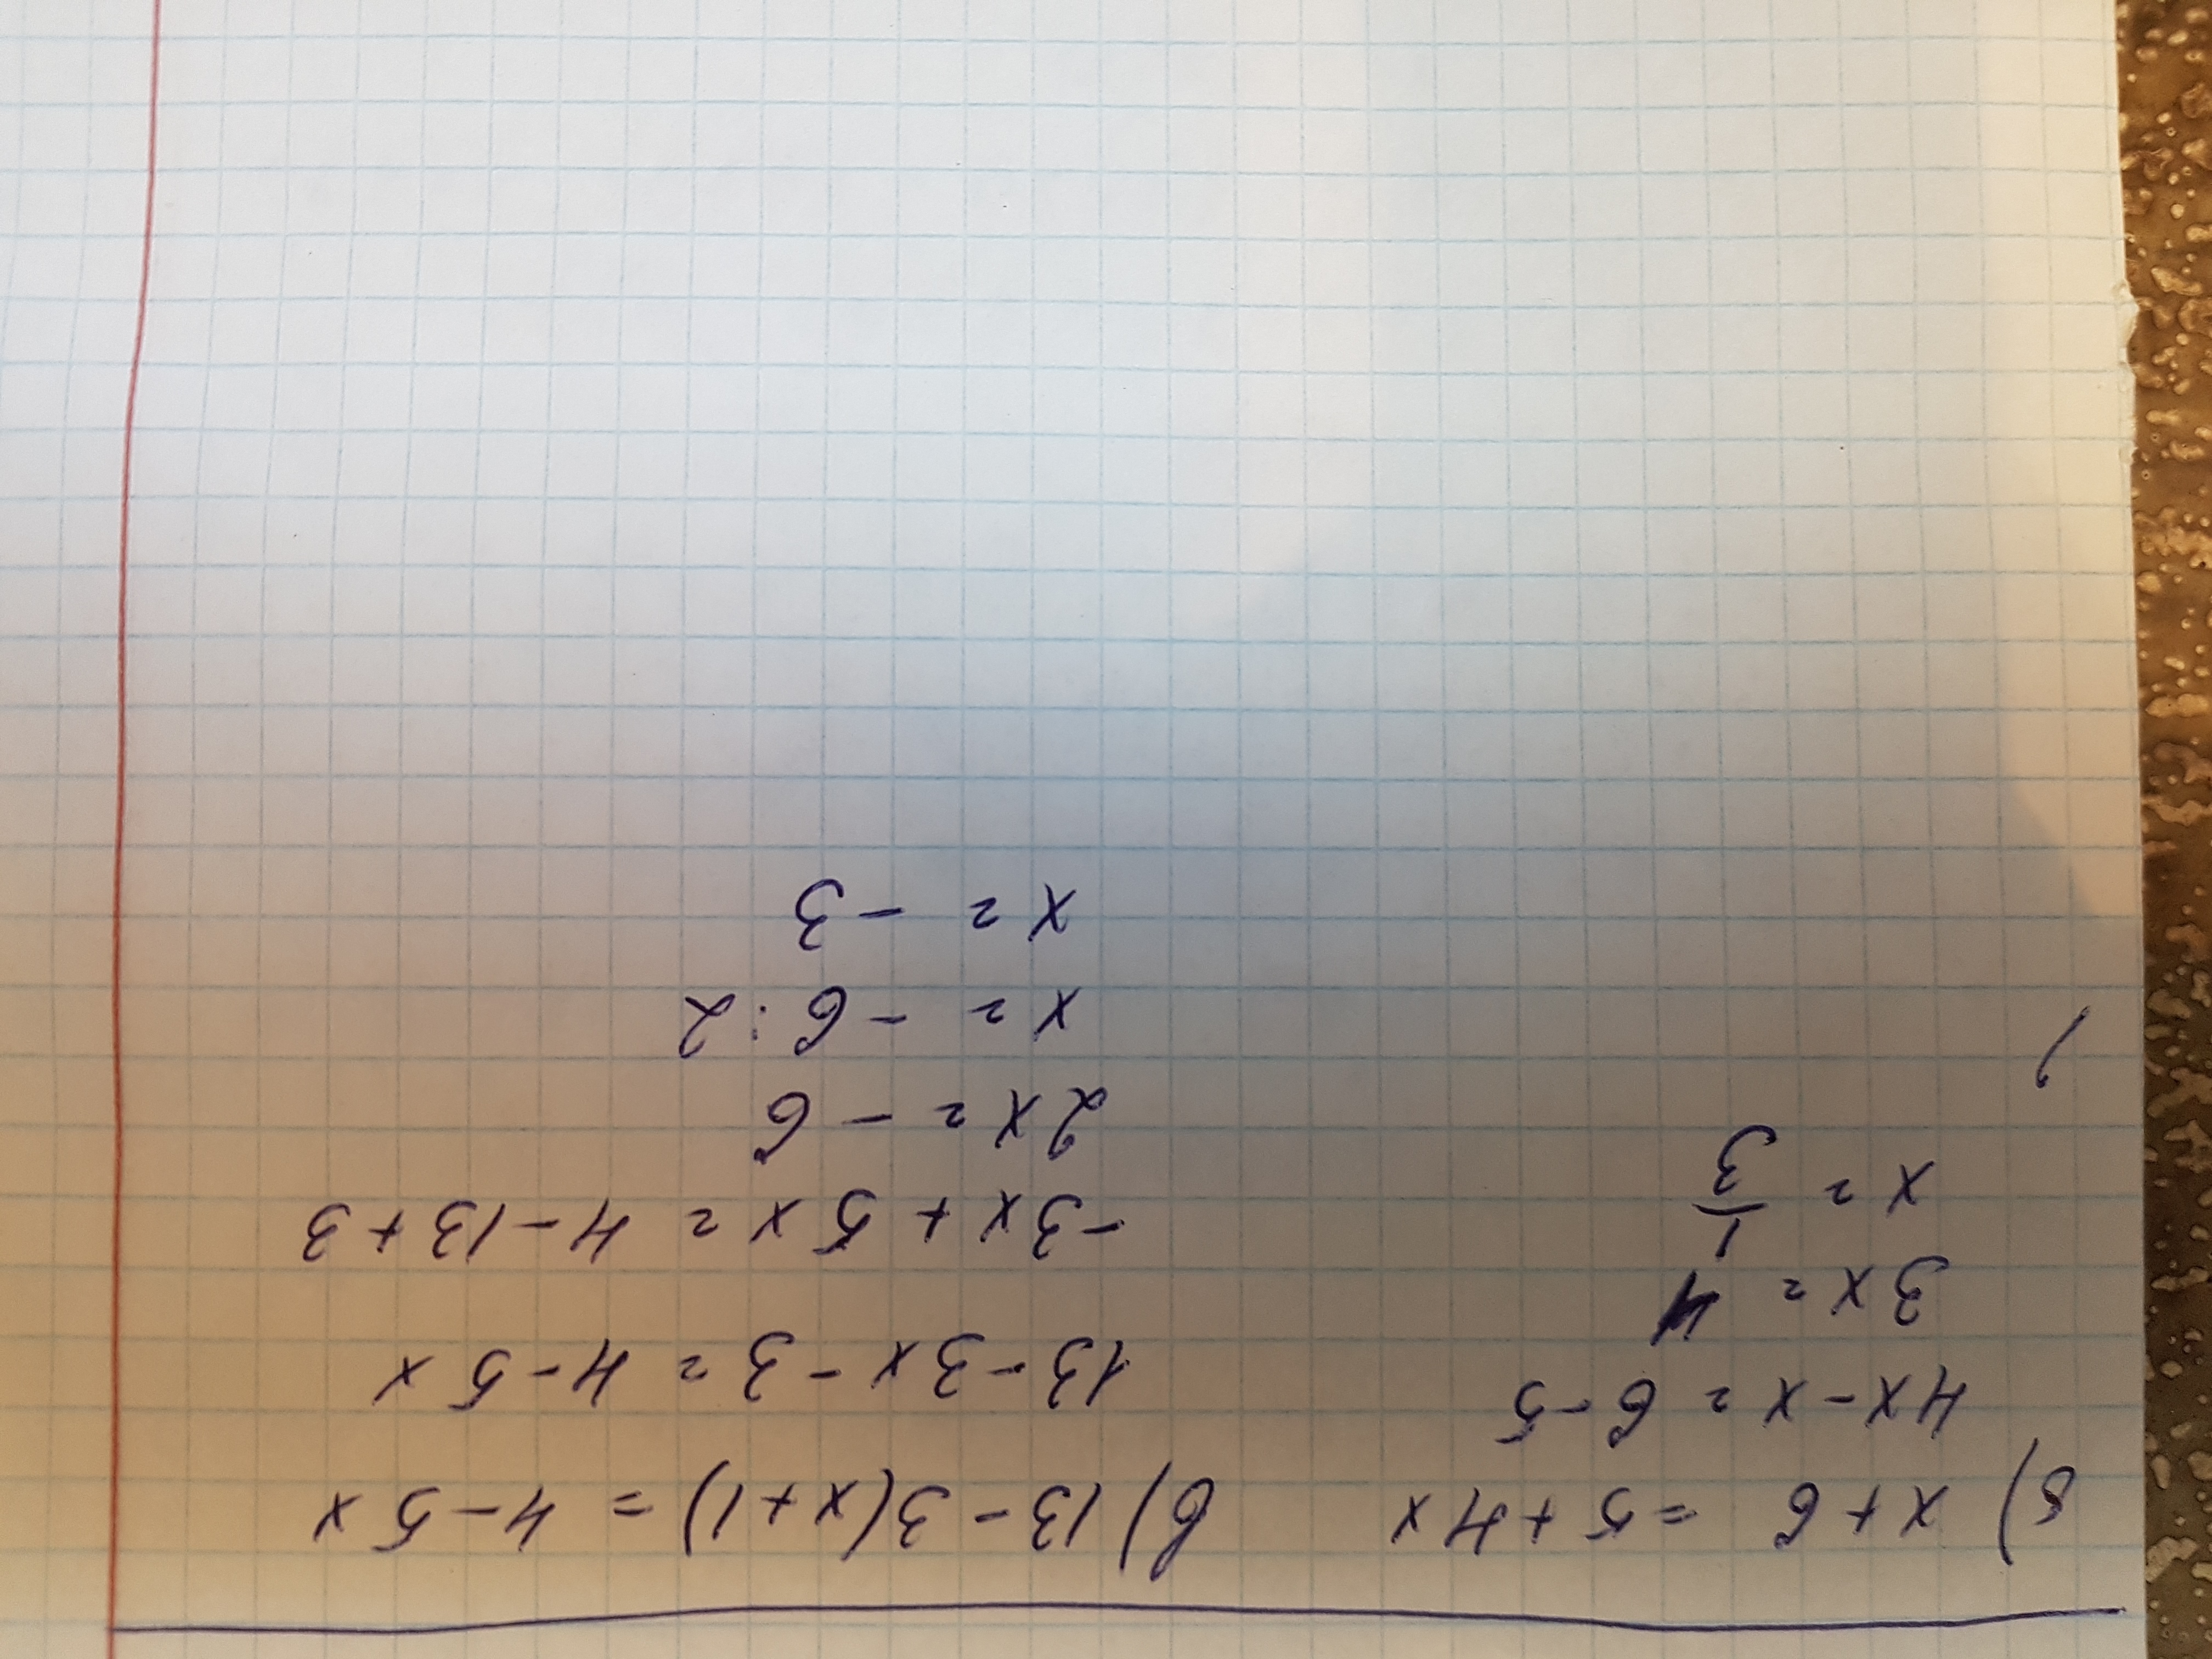 б) x + 6 = 5 + 4x
4x - x = 6 - 5
3x = 1
x = 1/3
в) 13 - 3(x + 1) = 4 - 5x
13 - 3x - 3 = 4 - 5x
-3x + 5x = 4 - 13 + 3
2x = -6
x = -6 : 2
x = -3